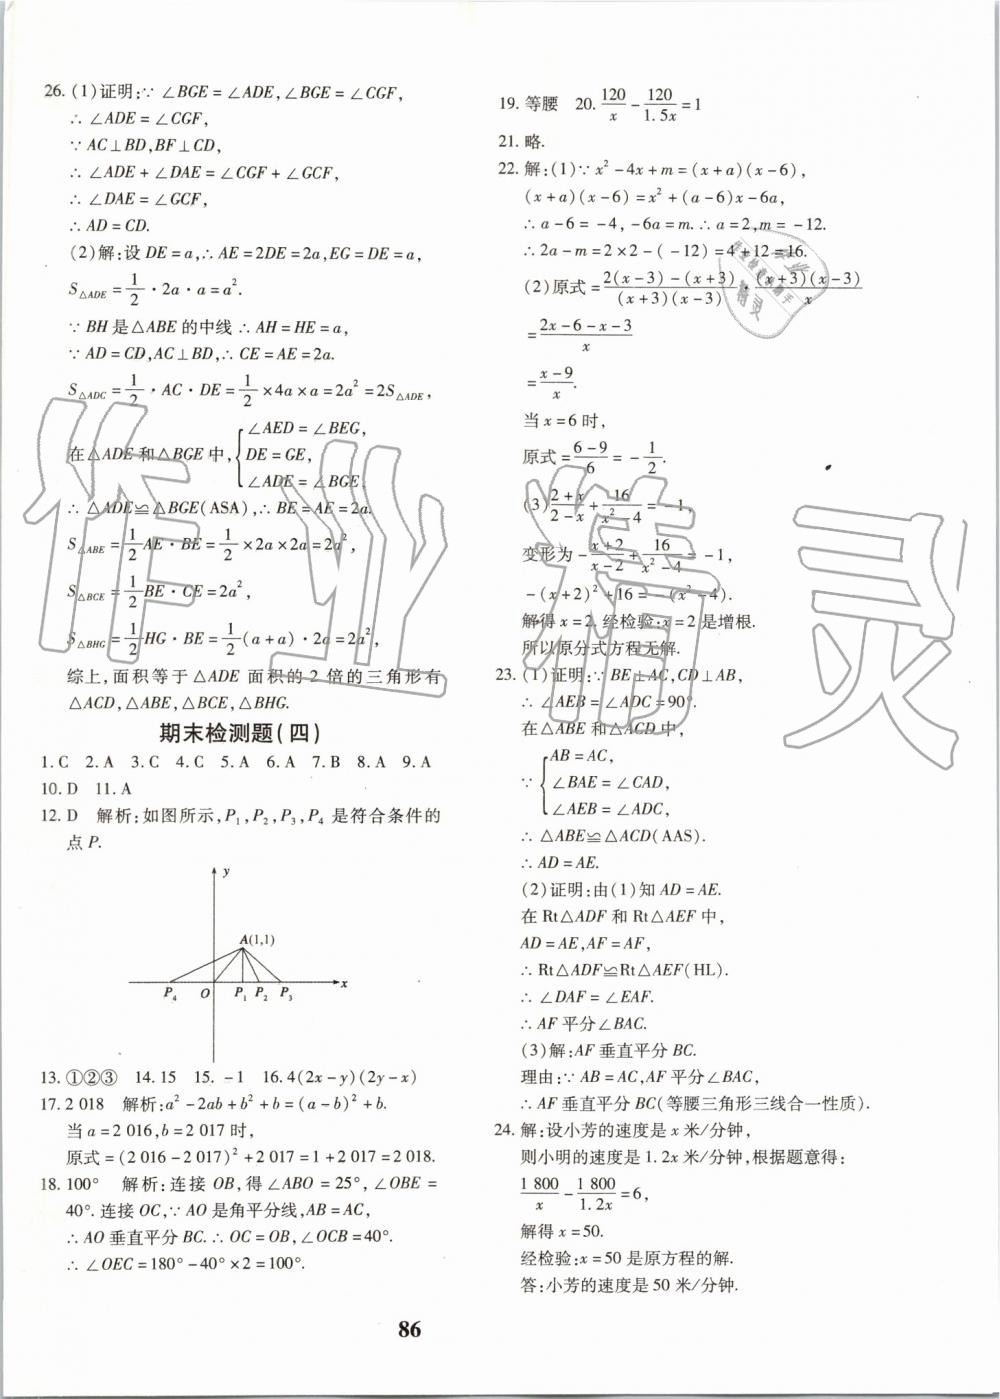 26. (1)证明:∵ ∠BGE = ∠ADE,∠BGE = ∠CGF,
∴ ∠ADE = ∠CGF,
∵ AC⊥BD,BF⊥CD,
∴ ∠ADE + ∠DAE = ∠CGF + ∠GCF,
∴ ∠DAE = ∠GCF,
∴ AD = CD.
(2)解:设 DE = a,∴ AE = 2DE = 2a,EG = DE = a,
S△ADE = 1/2 · 2a · a = a².
∵ BH 是△ABE 的中线 ∴ AH = HE = a,
∵ AD = CD,AC⊥BD,∴ CE = AE = 2a.
S△ADC = 1/2 · AC · DE = 1/2 × 4a × a = 2a² = 2S△ADE,
在△ADE 和△BGE 中, { ∠AED = ∠BEG,
DE = GE,
∠ADE = ∠BGE
∴ △ADE≌△BGE(ASA),∴ BE = AE = 2a.
S△ABE = 1/2 AE · BE = 1/2 × 2a × 2a = 2a²,
S△BCE = 1/2 BE · CE = 2a²,
S△BHG = 1/2 HG · BE = 1/2 (a + a) · 2a = 2a²,
综上,面积等于△ADE 面积的 2 倍的三角形有
△ACD,△ABE,△BCE,△BHG.
期末检测题(四)
1. C 2. A 3. C 4. C 5. A 6. A 7. B 8. A 9. A
10. D 11. A
12. D 解析:如图所示,P₁,P₂,P₃,P₄ 是符合条件的
点 P.
y
A(1,1)
P₄ O P₁ P₂ P₃ x
13. ①②③ 14. 15 15. -1 16. 4(2x-y)(2y-x)
17. 2 018 解析:a²-2ab+b²+b=(a-b)²+b.
当 a=2 016,b=2 017时,
原式=(2 016-2 017)²+2 017=1+2 017=2 018.
18. 100° 解析:连接 OB,得∠ABO=25°,∠OBE=
40°. 连接 OC,∵ AO 是角平分线,AB=AC,
∴ AO 垂直平分 BC. ∴ OC=OB,∠OCB=40°.
∴ ∠OEC=180°-40°×2=100°.
19. 等腰 20. 120/x - 120/1.5x = 1
21. 略.
22. 解:(1)∵ x²-4x+m=(x+a)(x-6),
(x+a)(x-6)=x²+(a-6)x-6a,
∴ a-6=-4,-6a=m. ∴ a=2,m=-12.
∴ 2a-m=2×2-(-12)=4+12=16.
(2)原式= 2(x-3)-(x+3)/(x+3)(x-3) · (x+3)(x-3)/x
= 2x-6-x-3/x
= x-9/x.
当 x=6 时,
原式= 6-9/6 = -1/2.
(3) 2+x/2-x + 16/x²-4 = -1,
变形为 - x+2/x-2 + 16/x²-4 = -1,
-(x+2)²+16=-(x²-4).
解得 x=2. 经检验:x=2 是增根.
所以原分式方程无解.
23. (1)证明:∵ BE⊥AC,CD⊥AB,
∴ ∠AEB=∠ADC=90°.
在△ABE 和△ACD 中,
∵ { AB=AC,
∠BAE=∠CAD,
∠AEB=∠ADC,
∴ △ABE≌△ACD(AAS).
∴ AD=AE.
(2)证明:由(1)知 AD=AE.
在 Rt△ADF 和 Rt△AEF 中,
AD=AE,AF=AF,
∴ Rt△ADF≌Rt△AEF(HL).
∴ ∠DAF=∠EAF.
∴ AF 平分∠BAC.
(3)解:AF 垂直平分 BC.
理由:∵ AB=AC,AF 平分∠BAC,
∴ AF 垂直平分 BC(等腰三角形三线合一性质).
24. 解:设小芳的速度是 x 米/分钟,
则小明的速度是 1.2x 米/分钟,根据题意得:
1 800/x - 1 800/1.2x = 6,
解得 x=50.
经检验:x=50 是原方程的解.
答:小芳的速度是 50 米/分钟.
86
作业精灵